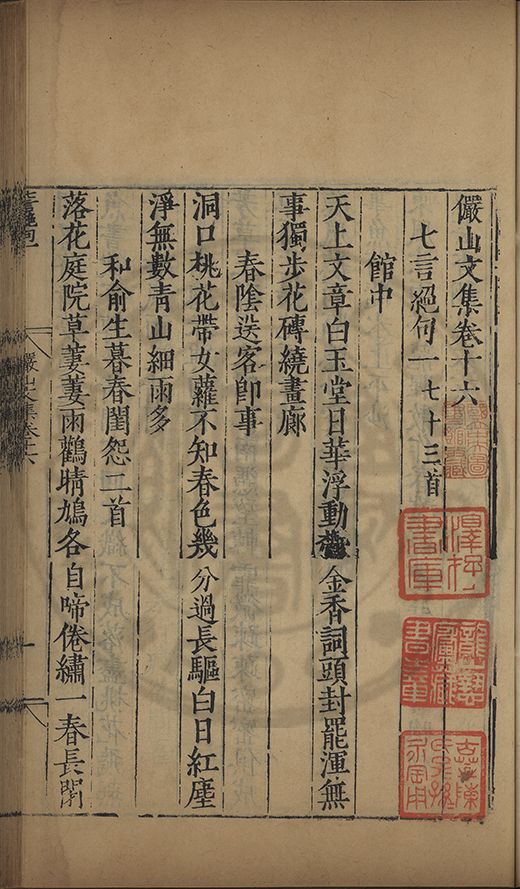 儼山文集卷十六
七言絕句一七十三首
館中
天上文章白玉堂日華浮動 金香詞頭封罷渾無
事獨步花磚繞畫廊
春陰送客卽事
洞口桃花帶女蘿不知春色幾分過長驅白日紅塵
淨無數青山細雨多
和俞生暮春閨怨二首
落花庭院草萋萋雨鸛晴鳩各自啼倦繡一春長閉